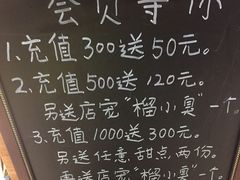 会员等你
1.充值300送50元。
2.充值500送120元。
另送店宠“榴小臭”一个。
3.充值1000送300元。
另送任意甜点两份。
再送店宠“榴小臭”一个。